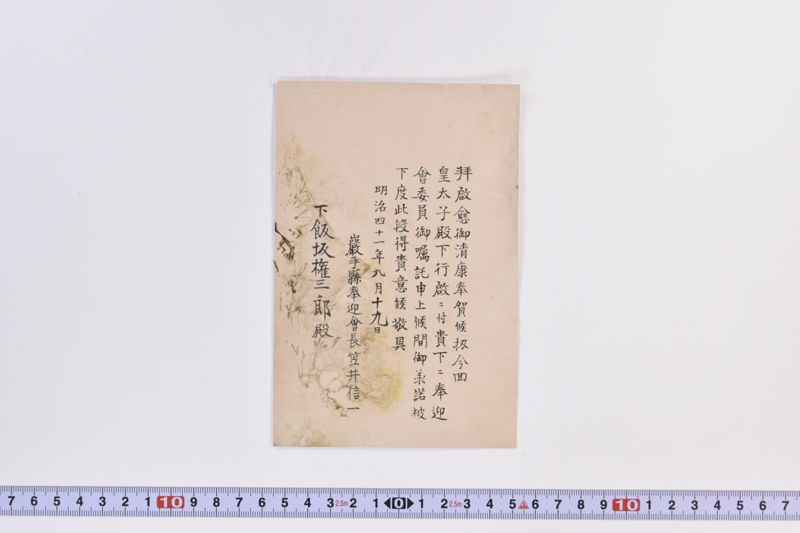 拜啟愈御清康奉賀候扨今回
皇太子殿下行啟ニ付貴下ニ奉迎
會委員御囑託申上候間御承諾被
下度此段得貴意候敬具
明治四十一年九月十九日
巖手縣奉迎會長笠井信一
下飯坂権三郎殿
7 6 5 4 3 2 1 10 9 8 7 6 5 4 3 2.5m 2 1 0 1 2 2.5m 3 4 5 6 7 8 9 10 1 2 3 4 5 6 7